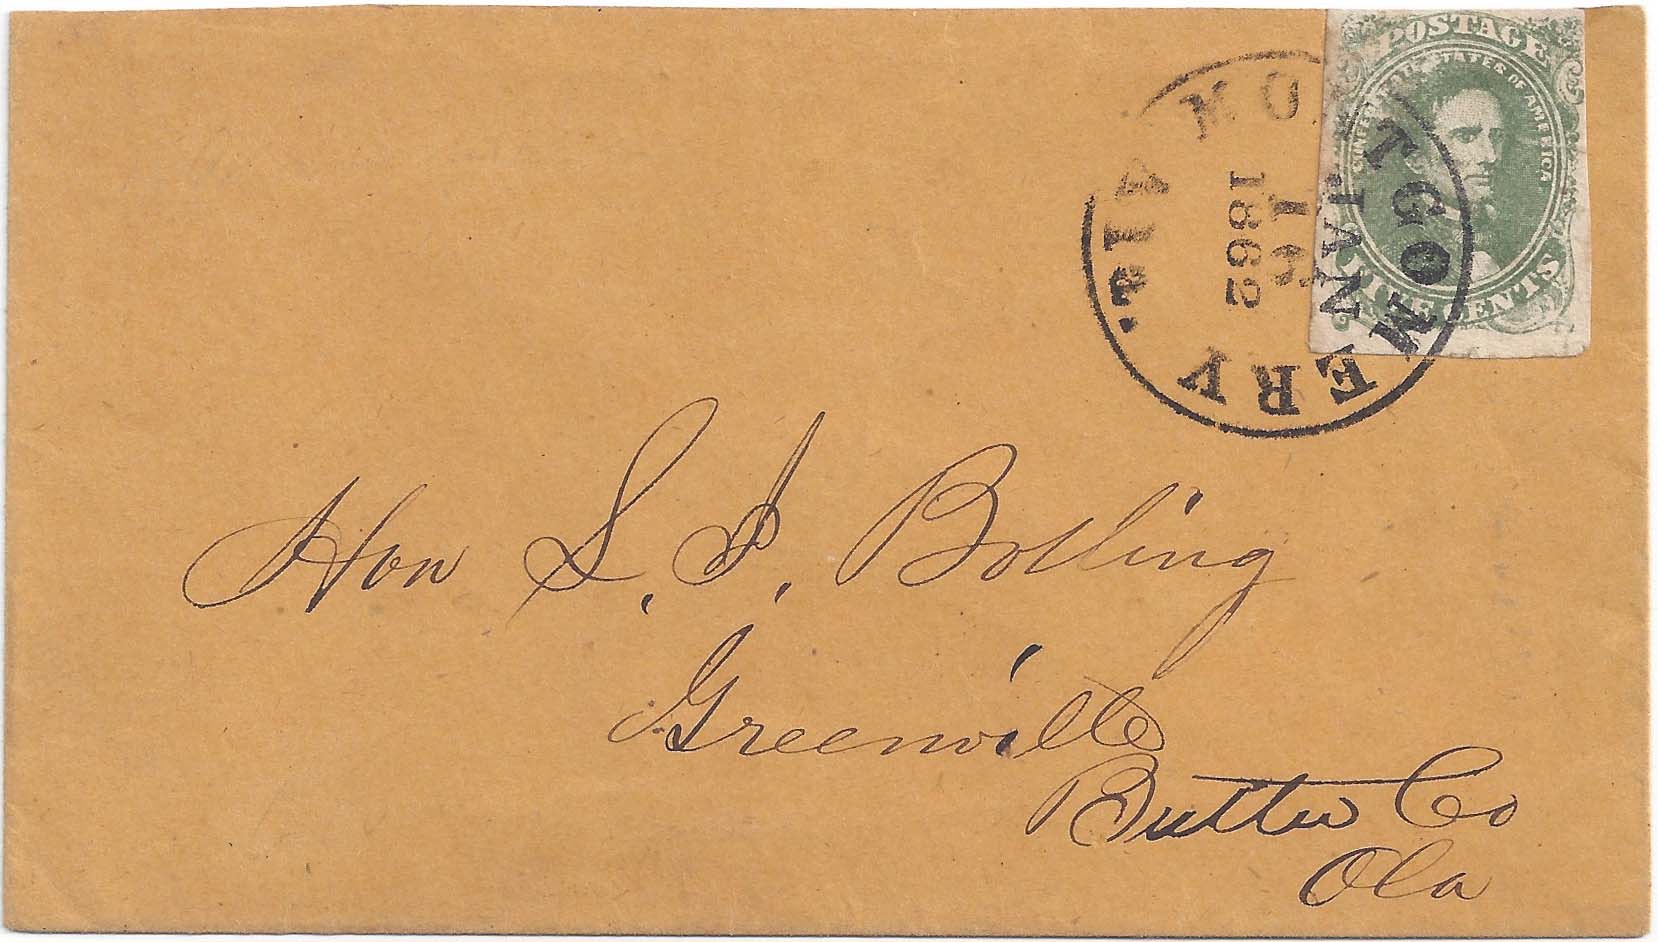 POSTAGE
CONFEDERATE STATES OF AMERICA
FIVE CENTS
MONTGOMERY ALA.
JAN
16
1862
Hon S. J. Bolling
Greenville
Butler Co
Ala